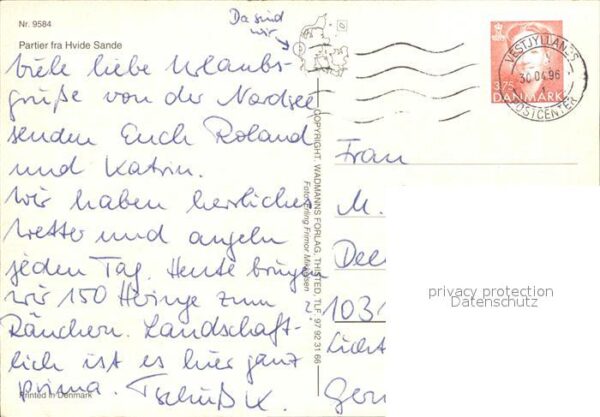 Nr. 9584
Partier fra Hvide Sande
Da sind
wir
Viele liebe Urlaubs-
grüße von der Nordsee
senden Euch Roland
und Katrin.
Wir haben herrliches
Wetter und angeln
jeden Tag. Heute bringen
wir 150 Heringe zum
Räuchern. Landschaft-
lich ist es hier ganz
prima. Tschüß K.
Printed in Denmark
COPYRIGHT: WADMANNS FORLAG, THISTED, TLF. 97 92 31 66
VESTJYLLANDS
30.04.96
1
POSTCENTER
3.75
DANMARK
Frau
M.
103
Licht
Ger
privacy protection
Datenschutz